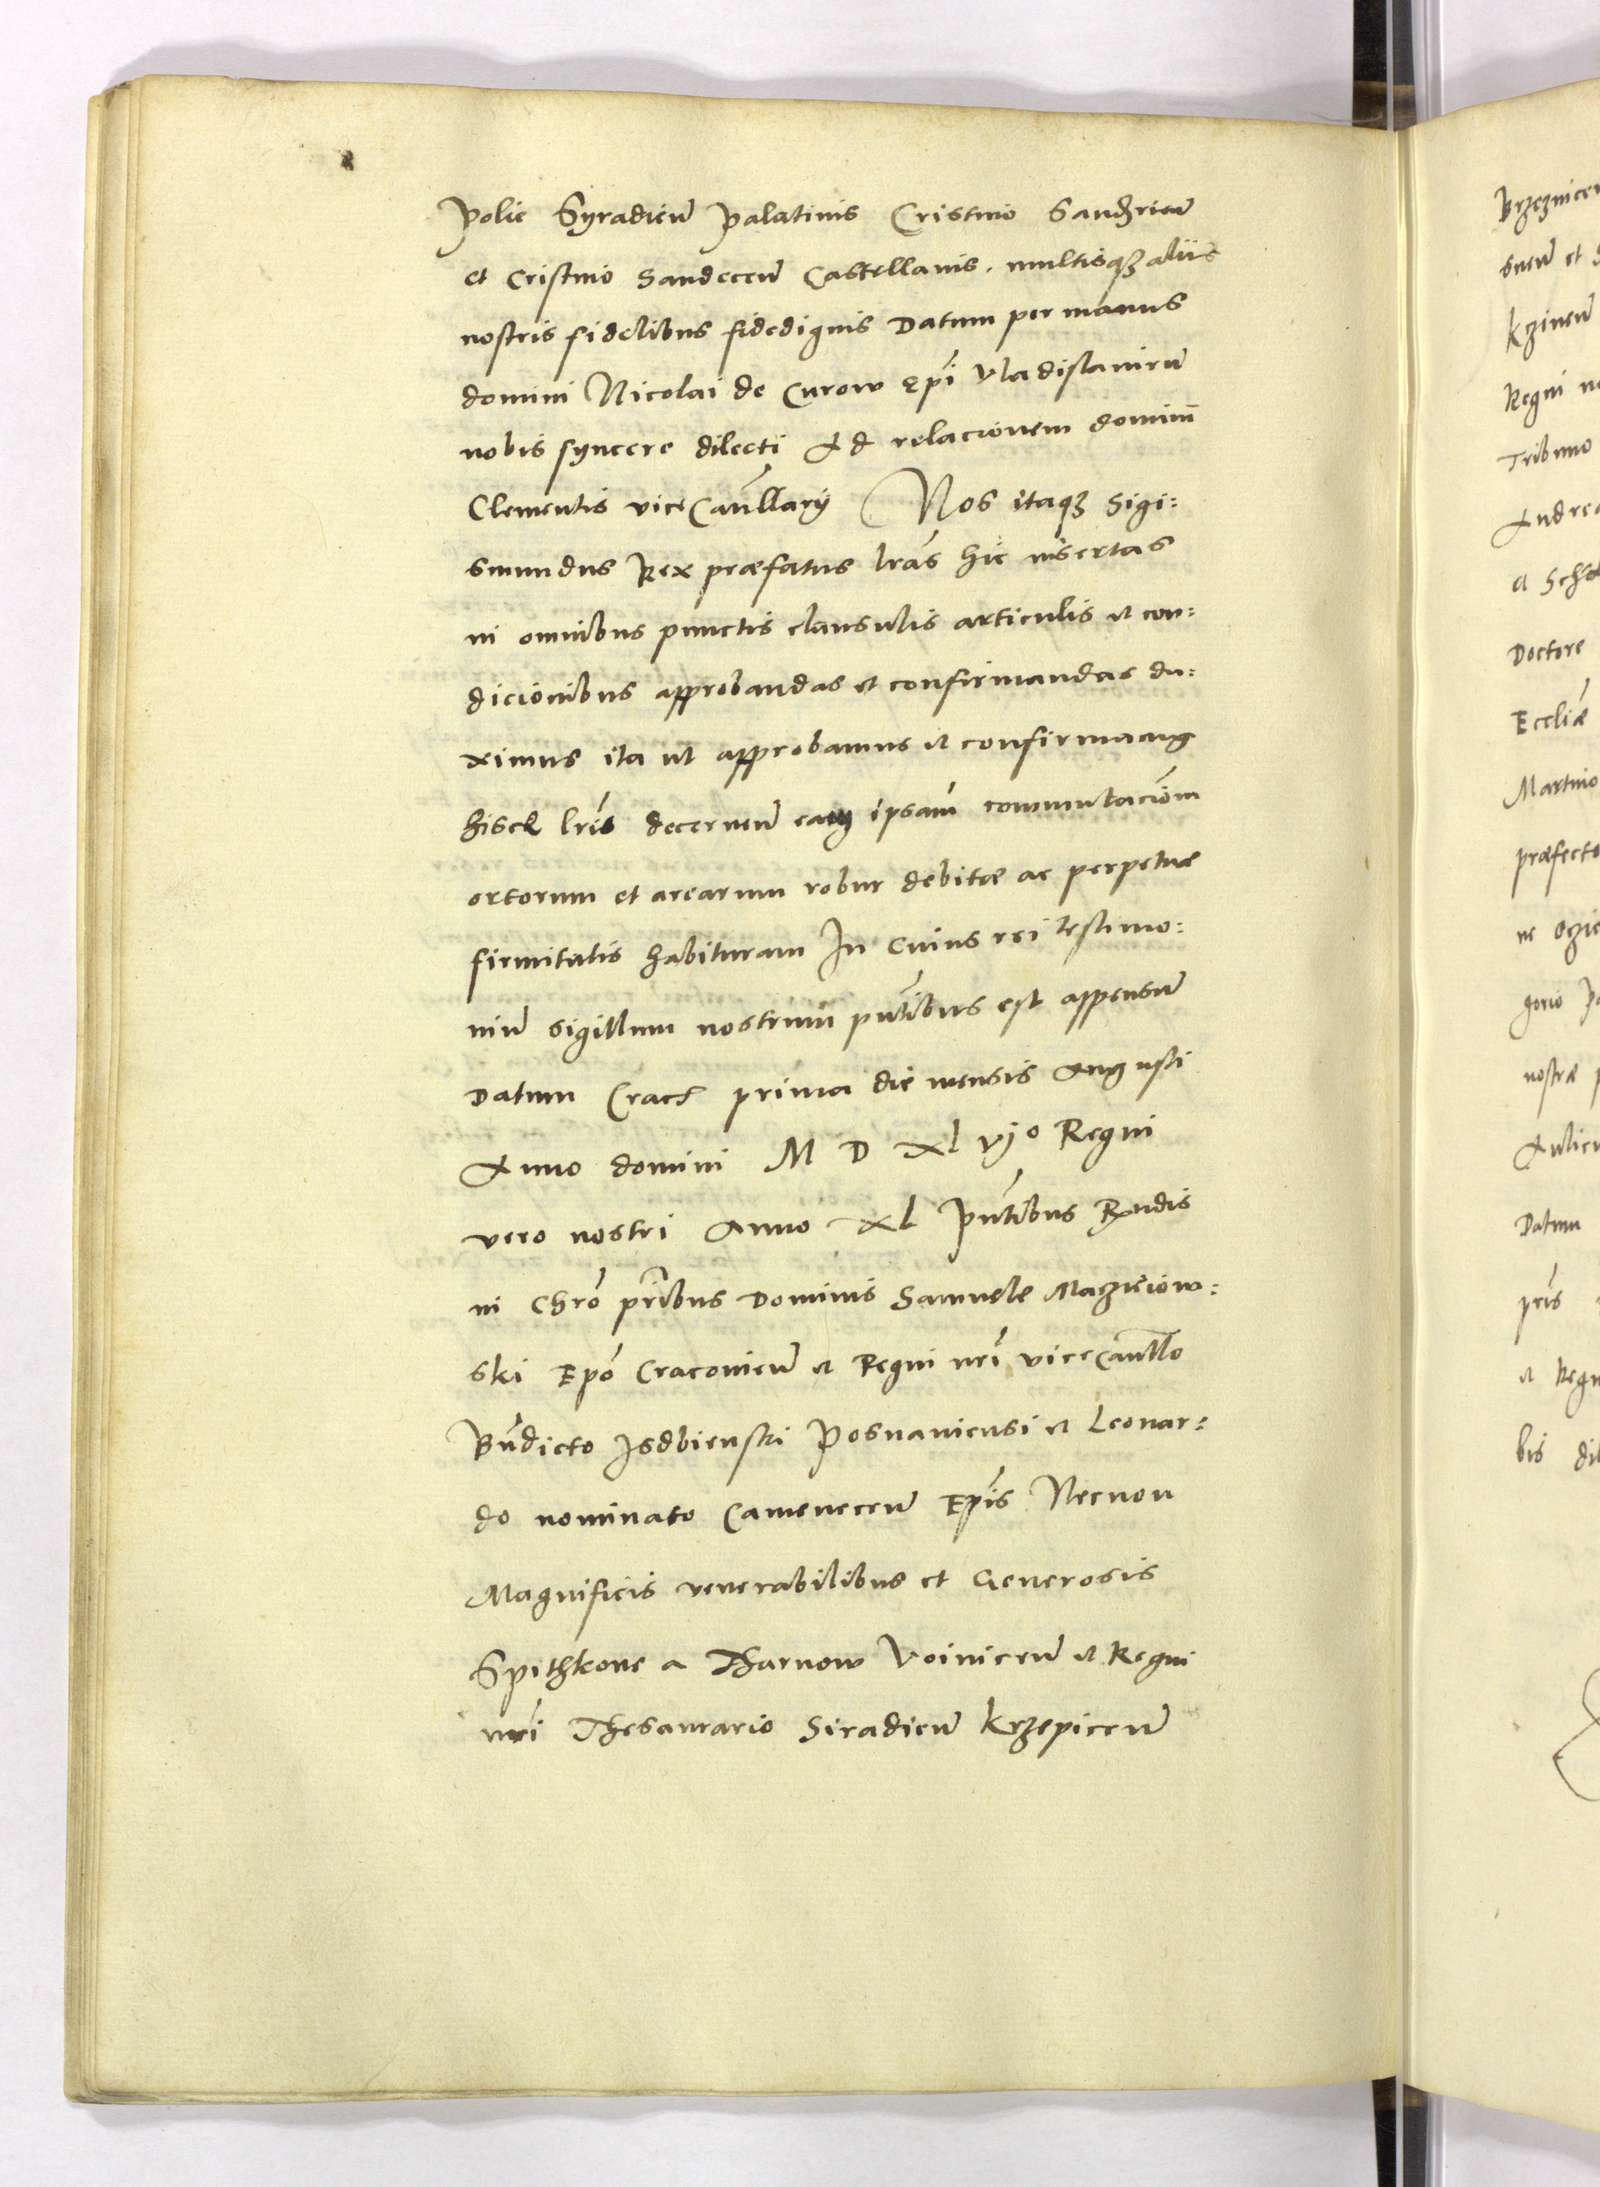 Polie Syradien̄ Palatinis Cristino Sandzien̄
et Cristino Sandecen̄ Castellanis. multisqȝ aliis
nostris fidelibus fidedignis Datum per manus
domini Nicolai de Curow Ep̄i Vladislavien̄
nobis syncere dilecti Ad relacionem domini
Clementis viceCan̄llarÿ Nos itaqȝ Sigi:
smundus Rex præfatus l̄ras hic insertas
in omnibus punctis clausulis articulis et con:
dicionibus approbandas et confirmandas du:
ximus ita ut approbamus et confirmamꝰ
hisce l̄ris decernen̄ eam ipsam̄ commutacio͞nem
ortorum et arearum robur debitæ ac perpetuæ
firmitatis habituram In Cuius rei testimo:
niu͞ sigillum nostrum p͞ntibus est appensu͞
Datum Crac prima die mensis Augusti
Anno domini M D Xl vjº Regni
vero nostri Anno Xl P͞ntibus R͞ndis
in Chr͞o pr͞ibus Dominis Samuele Macziеiow:
ski Ep͞o Cracovien̄ et Regni nr͞i viceCan͞llo
B͞ndicto Isdbienski Posnaniensi et Leonar:
do nominato Camenecen̄ Ep͞is Necnon
Magnificis venerabilibus et Generosis
Spithkone a Tharnow Voinicen̄ et Regni
nr͞i Thesaurario Siradien̄ krzepicen̄
Brzeznicen
kzinen̄
Regni
Tribuno
Doctore
Eccl͞iæ
Martino
præfecto
nostræ
Datum
pr͞is
bis